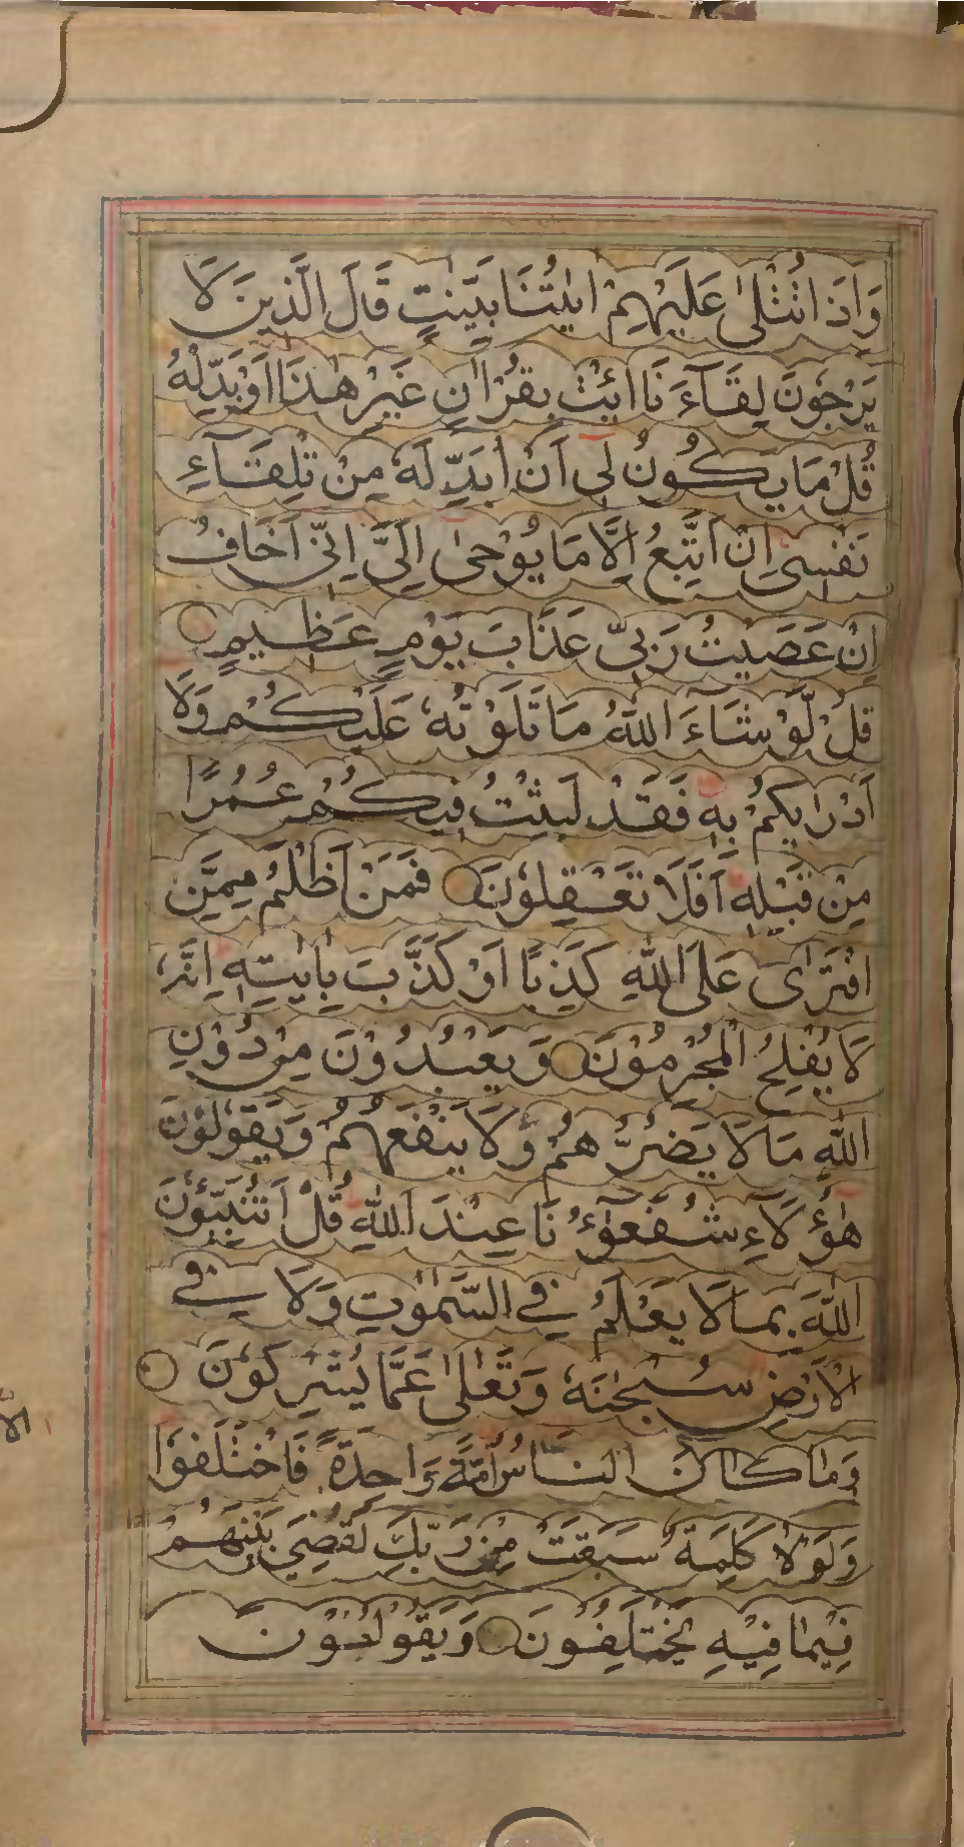 وَاِذَا تُتْلٰى عَلَيْهِمْ اٰيٰتُنَا بَيِّنٰتٍ قَالَ الَّذِينَ لَا
يَرْجُونَ لِقَآءَ نَا ائْتِ بِقُرْاٰنٍ غَيْرِ هٰذَا اَوْ بَدِّلْهُ
قُلْ مَا يَكُونُ لِى اَنْ اُبَدِّلَهٗ مِنْ تِلْقَآءِ
نَفْسِى اِنْ اَتَّبِعُ اِلَّا مَا يُوْحٰى اِلَيَّ اِنِّى اَخَافُ
اِنْ عَصَيْتُ رَبِّى عَذَابَ يَوْمٍ عَظِيمٍ
قُلْ لَّوْ شَآءَ اللّٰهُ مَا تَلَوْتُهٗ عَلَيْكُمْ وَلَا
اَدْرٰىكُمْ بِهٖ فَقَدْ لَبِثْتُ فِيكُمْ عُمُرًا
مِنْ قَبْلِهٖ اَفَلَا تَعْقِلُونَ فَمَنْ اَظْلَمُ مِمَّنِ
افْتَرٰى عَلَى اللّٰهِ كَذِبًا اَوْ كَذَّبَ بِاٰيٰتِهٖ اِنَّهٗ
لَا يُفْلِحُ الْمُجْرِمُوْنَ وَيَعْبُدُوْنَ مِنْ دُوْنِ
اللّٰهِ مَا لَا يَضُرُّهُمْ وَلَا يَنْفَعُهُمْ وَيَقُولُوْنَ
هٰؤُلَآءِ شُفَعٰٓؤُنَا عِنْدَ اللّٰهِ قُلْ اَتُنَبِّؤُنَ
اللّٰهَ بِمَا لَا يَعْلَمُ فِي السَّمٰوٰتِ وَلَا فِي
الْاَرْضِ سُبْحٰنَهٗ وَتَعٰلٰى عَمَّا يُشْرِكُوْنَ
وَمَا كَانَ النَّاسُ اِلَّا اُمَّةً وَاحِدَةً فَاخْتَلَفُوْا
وَلَوْلَا كَلِمَةٌ سَبَقَتْ مِنْ رَبِّكَ لَقُضِيَ بَيْنَهُمْ
فِيْمَا فِيْهِ يَخْتَلِفُوْنَ وَيَقُولُوْنَ
اِلَّا